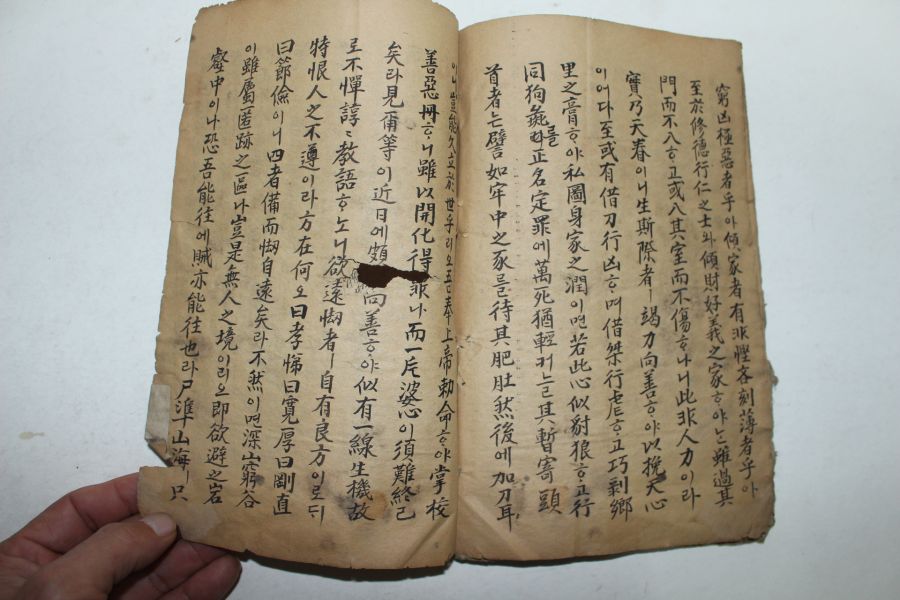 窮凶極惡者乎아傾家者有非慳吝刻薄者乎아
至於修德行仁之士와傾財好義之家ᄒᆞ야ᄂᆞᆫ雖過其
門而不入ᄒᆞ고或入其室而不傷ᄒᆞ나니此非人力이라
實乃天眷이니生斯際者ㅣ竭力向善ᄒᆞ야以挽天心
이어다至或有借刀行凶ᄒᆞ며借桀行虐ᄒᆞ고巧剝鄉
里之膏ᄒᆞ야私圖身家之潤이면若此心似豺狼ᄒᆞ고行
同狗彘를正名定罪에萬死猶輕커ᄂᆞᆯ其暫寄頭
首者ᄂᆞᆫ譬如牢中之豕를待其肥肚然後에加刀耳
이니豈能久立於世乎리오吾奉上帝勅命ᄒᆞ야掌校
善惡冊ᄒᆞ니雖以開化得罪나而一片婆心이須難終已
矣라見爾等이近日에頗向善ᄒᆞ야似有一線生機故
로不憚諄諄教語ᄒᆞ노니欲遠刼者ㅣ自有良方이로ᄃᆡ
特恨人之不遵이라方在何오曰孝悌曰寬厚曰剛直
曰節儉이니四者備而刼自遠矣라不然이면深山窮谷
이雖屬匿跡之區나豈是無人之境이리오即欲避之岩
壑中이나恐吾能往에賊亦能往也라尸準山海ㅣ只